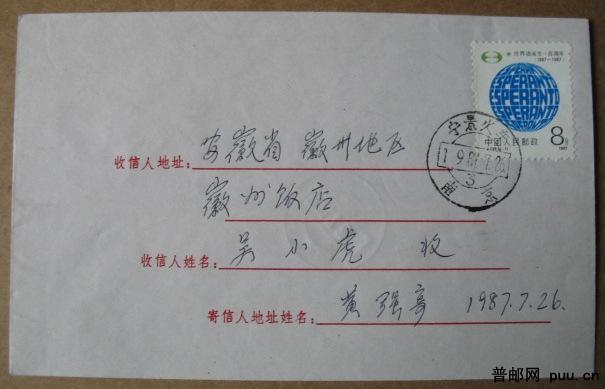 世界语诞生一百周年
(1887-1987)
ESPERANTO
ESPERANTO
ESPERANTO
ESPERANTO
中国人民邮政
8分
1987
南京
3
收信人地址: 安徽省 徽州地区
徽州饭店
收信人姓名: 吴小虎 收
寄信人地址姓名: 黄强 1987.7.26.
普邮网 puu.cn